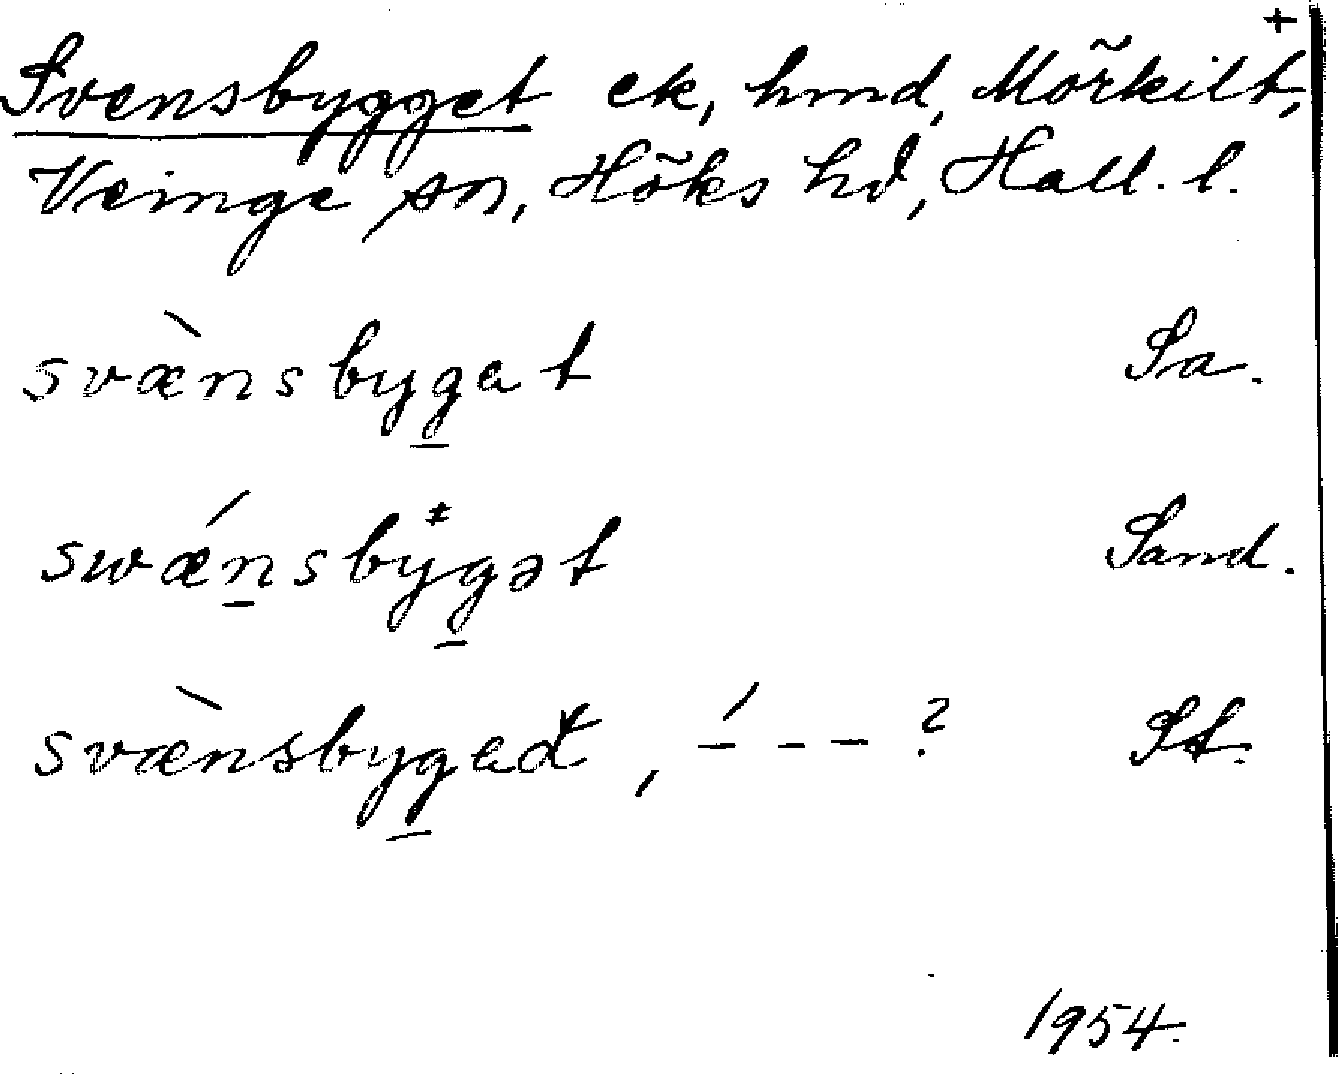 +
Svensbygget ek, hmd, Mörkilt,
Veinge sn, Höks hd, Hall. l.
svæ̀nsbyg̲et Sa.
swæ̂n̲sbyg̲ət Sand.
svæ̀nsbyg̲ed̆, –́ – – ? St.
1954.